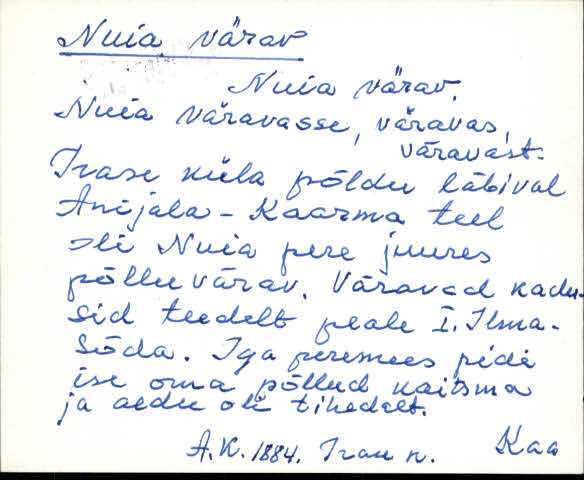 Nuia värav
Nuia värav.
Nuia väravasse, väravas,
väravast.
Irase küla põldu läbival
Anijala - Kaarma teel
oli Nuia pere juures
põlluvärav. Väravad kadu-
sid teedelt peale I. Ilma-
sõda. Iga peremees pidi
ise oma põllud kaitsma
ja aedu oli tihedalt.
A.K. 1884. Irase k. Kaa